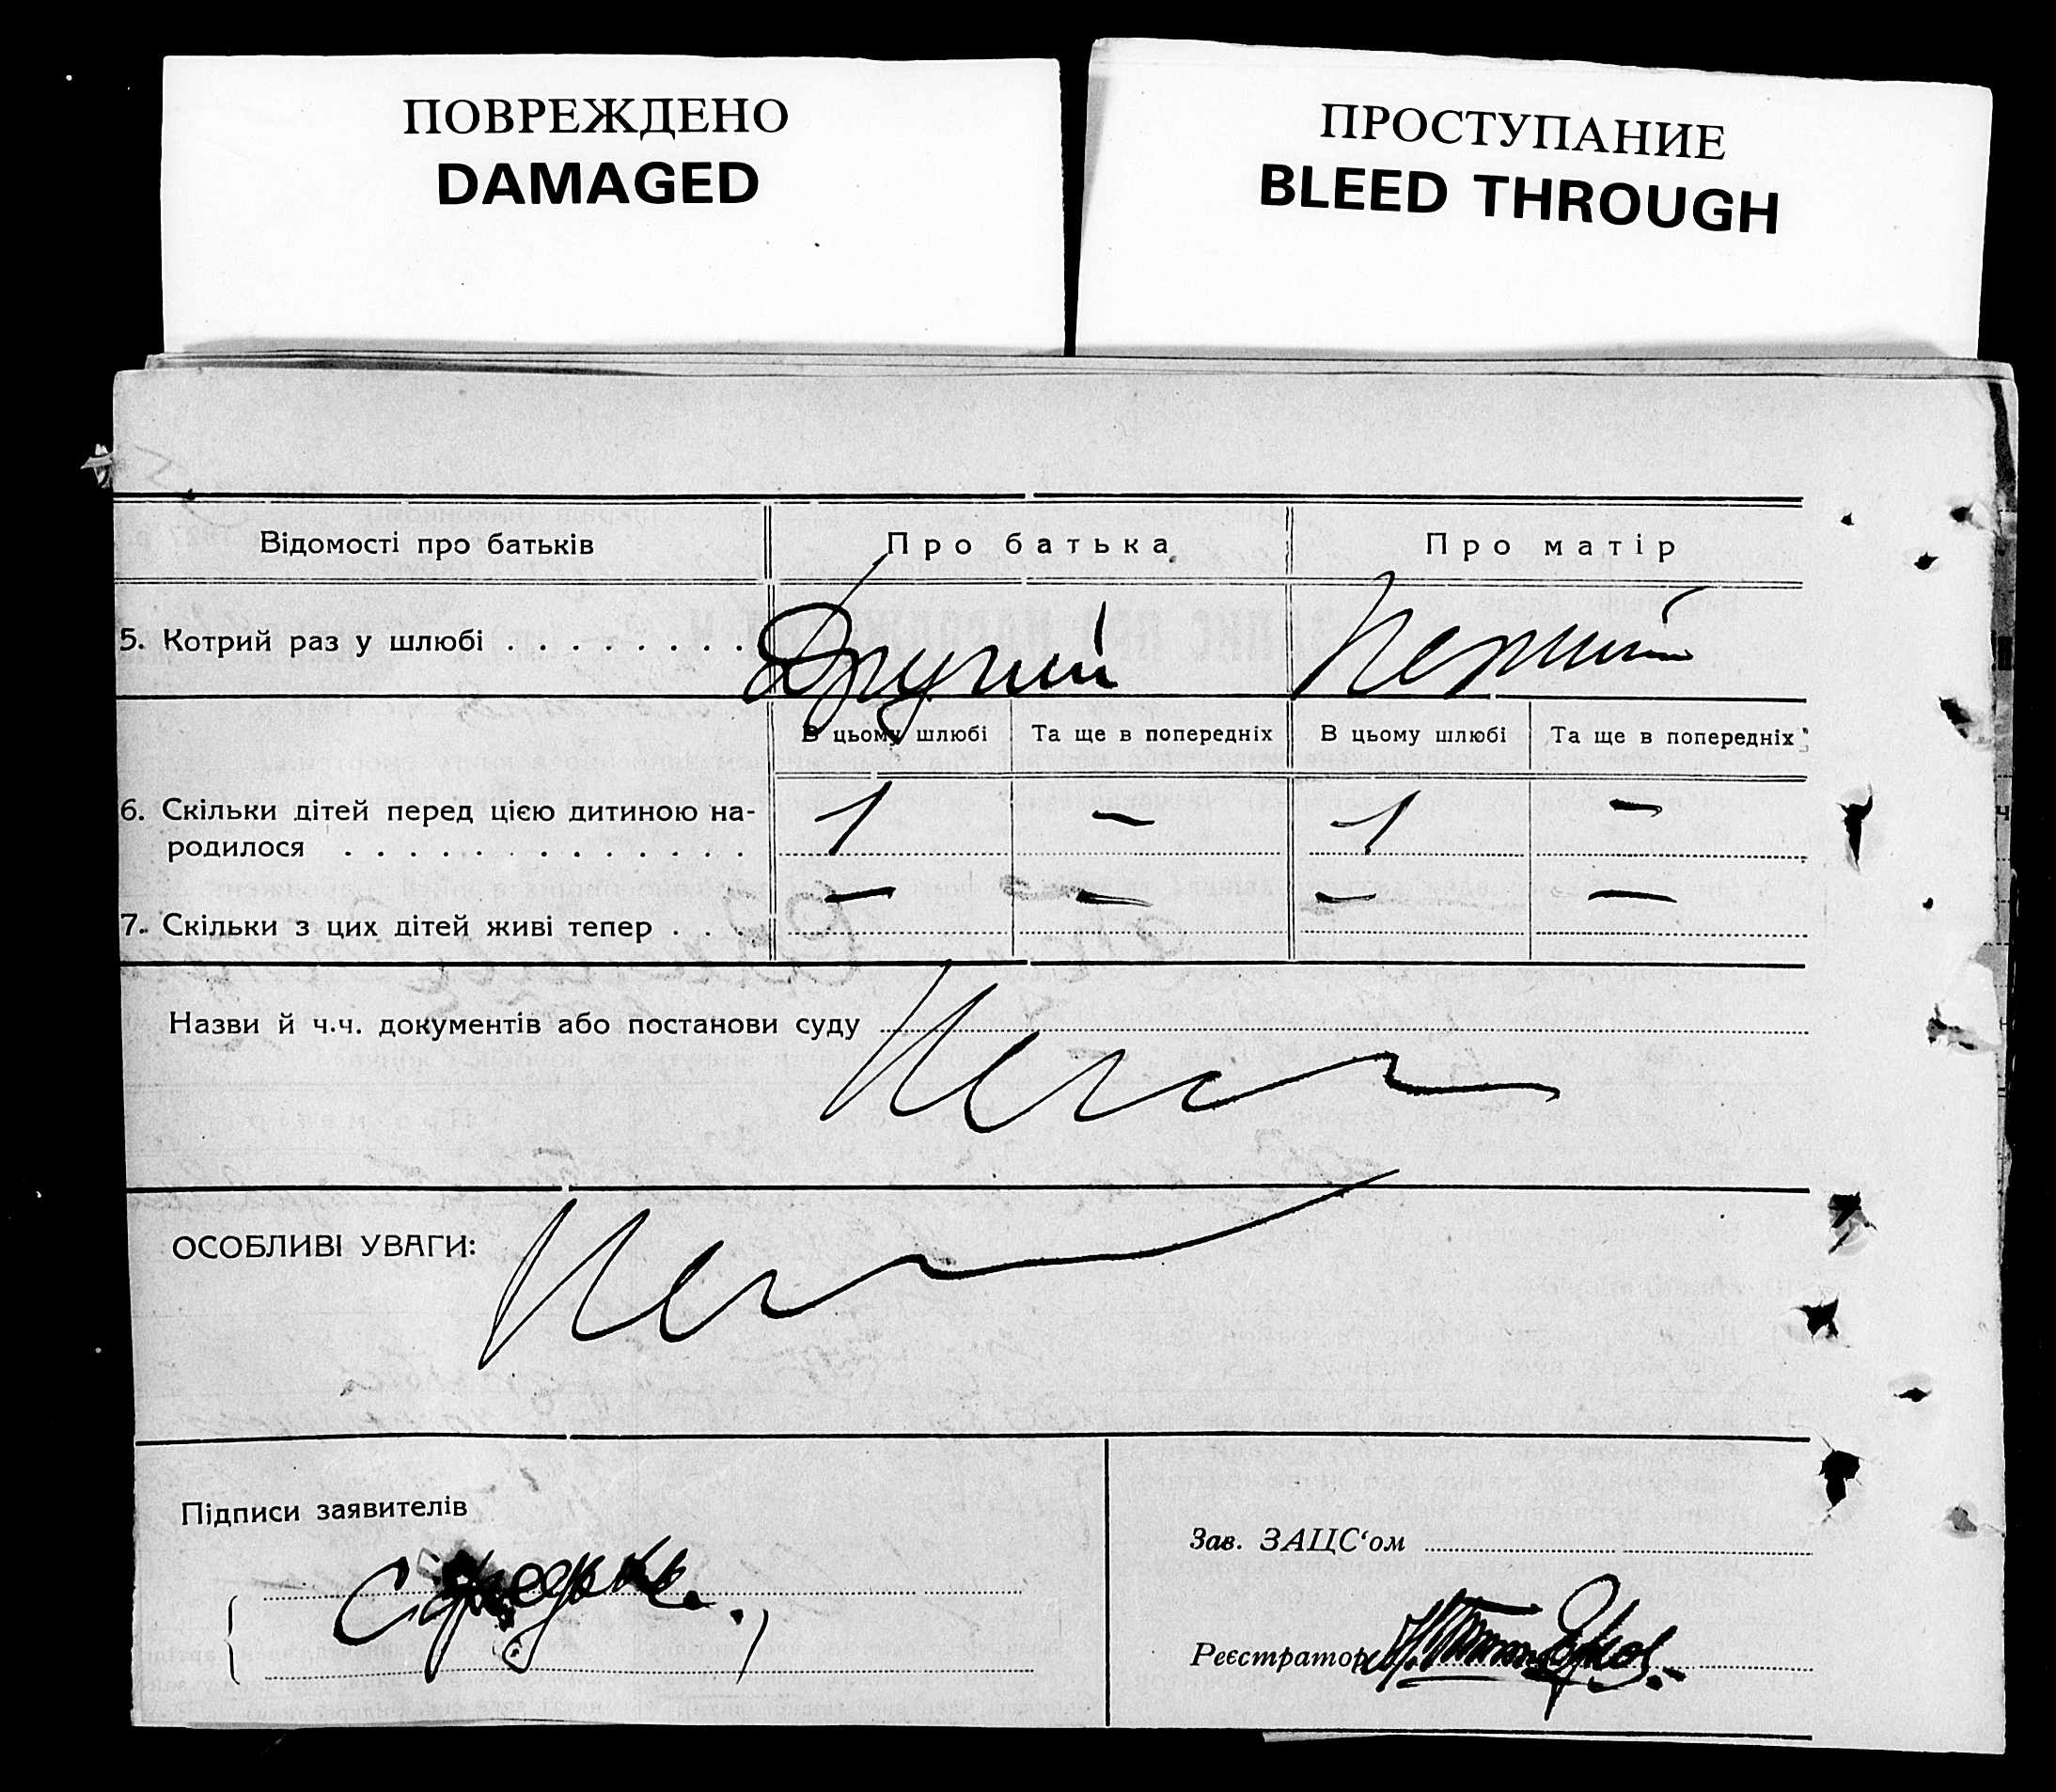 ПОВРЕЖДЕНО
DAMAGED
ПРОСТУПАНИЕ
BLEED THROUGH
Відомості про батьків Про батька Про матір
5. Котрий раз у шлюбі . . . . . . . . Другий Перший
В цьому шлюбі Та ще в попередніх В цьому шлюбі Та ще в попередніх
6. Скільки дітей перед цією дитиною на- 1 — 1 —
родилося . . . . . . . . . . . . .
7. Скільки з цих дітей живі тепер . . . — — — —
Назви й ч.ч. документів або постанови суду
Нема
ОСОБЛИВІ УВАГИ: Нема
Підписи заявителів
Зав. ЗАЦС‘ом
Реєстратор